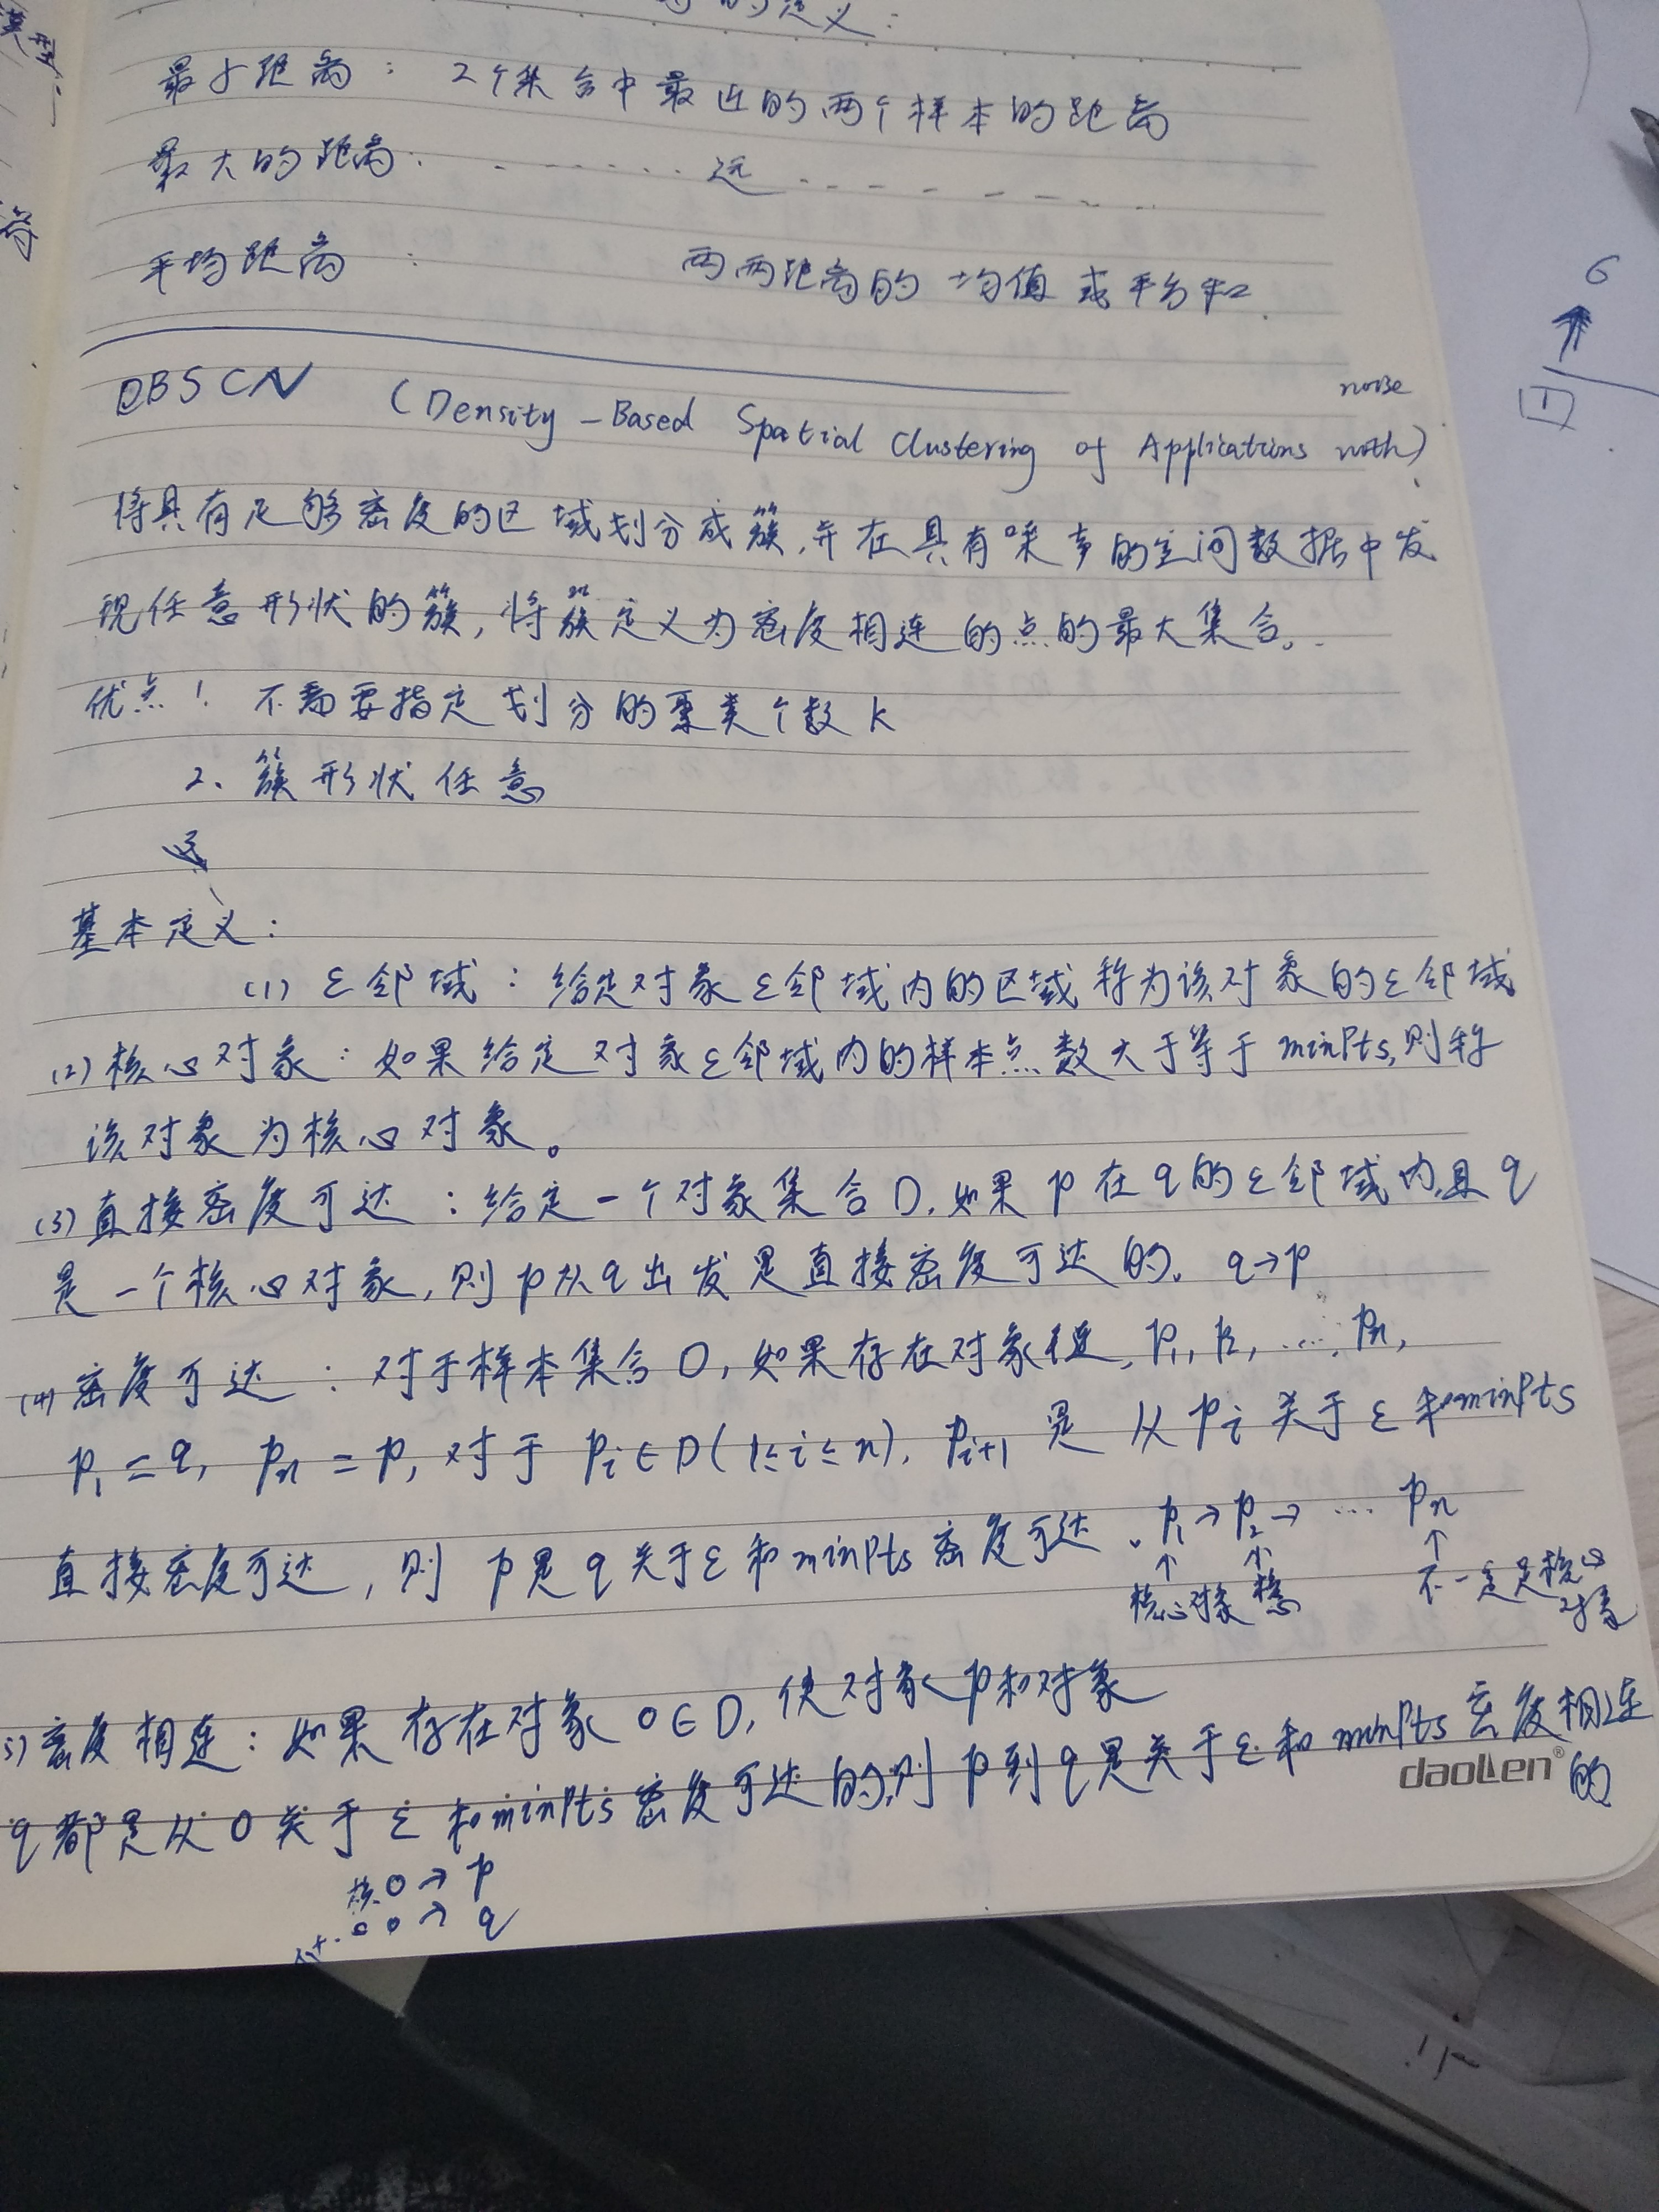 的定义:
最小距离: 2个集合中最近的两个样本的距离
最大的距离: - - - - - - 远 - - - - - - - -
平均距离: 两两距离的均值或平方和.
DBSCN (Density-Based Spatial Clustering of Applications with)
noise
将具有足够密度的区域划分成簇,并在具有噪声的空间数据中发
现任意形状的簇,将簇定义为密度相连的点的最大集合。
优点! 不需要指定划分的聚类个数k
2、簇形状任意
基本定义:
(1) ε邻域: 给定对象ε邻域内的区域称为该对象的ε邻域
(2) 核心对象: 如果给定对象ε邻域内的样本点数大于等于minPts,则称
该对象为核心对象。
(3) 直接密度可达: 给定一个对象集合D,如果p在q的ε邻域内,且q
是一个核心对象,则p从q出发是直接密度可达的。 q→p
(4) 密度可达: 对于样本集合D,如果存在对象链, p1, p2, ..., pn,
p1=q, pn=p, 对于pi∈D(1≤i≤n), pi+1 是从pi关于ε和minPts
直接密度可达,则p是q关于ε和minPts密度可达. p1→p2→ ... pn
↑ ↑ ↑
核心对象 核心 不一定是核心
对象
5) 密度相连: 如果存在对象o∈D,使对象p和对象
q都是从o关于ε和minPts密度可达的,则p到q是关于ε和minPts密度相连
的
daoLen®
核o→p
o→q
6